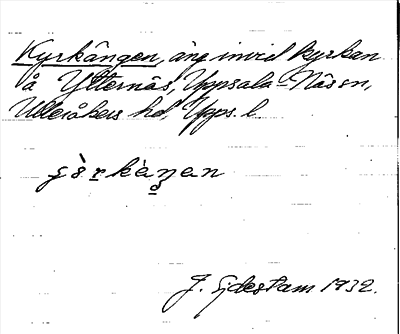 Kyrkängen, äng invid kyrkan
å Ytternäs, Uppsala-Näs sn,
Ulleråkers hd, Upps. l.
J. Sjdestam 1932.